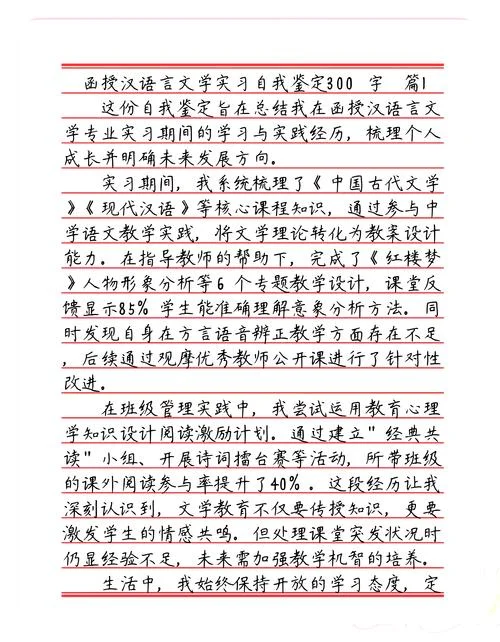 函授汉语言文学实习自我鉴定300 字 篇1
这份自我鉴定旨在总结我在函授汉语言文
学专业实习期间的学习与实践经历，梳理个人
成长并明确未来发展方向。
实习期间，我系统梳理了《中国古代文学
》《现代汉语》等核心课程知识，通过参与中
学语文教学实践，将文学理论转化为教案设计
能力。在指导教师的帮助下，完成了《红楼梦
》人物形象分析等6 个专题教学设计，课堂反
馈显示85% 学生能准确理解意象分析方法。同
时发现自身在方言语音辨正教学方面存在不足
，后续通过观摩优秀教师公开课进行了针对性
改进。
在班级管理实践中，我尝试运用教育心理
学知识设计阅读激励计划。通过建立"经典共
读"小组、开展诗词擂台赛等活动，所带班级
的课外阅读参与率提升了40% 。这段经历让我
深刻认识到，文学教育不仅要传授知识，更要
激发学生的情感共鸣。但处理课堂突发状况时
仍显经验不足，未来需加强教学机智的培养。
生活中，我始终保持开放的学习态度，定